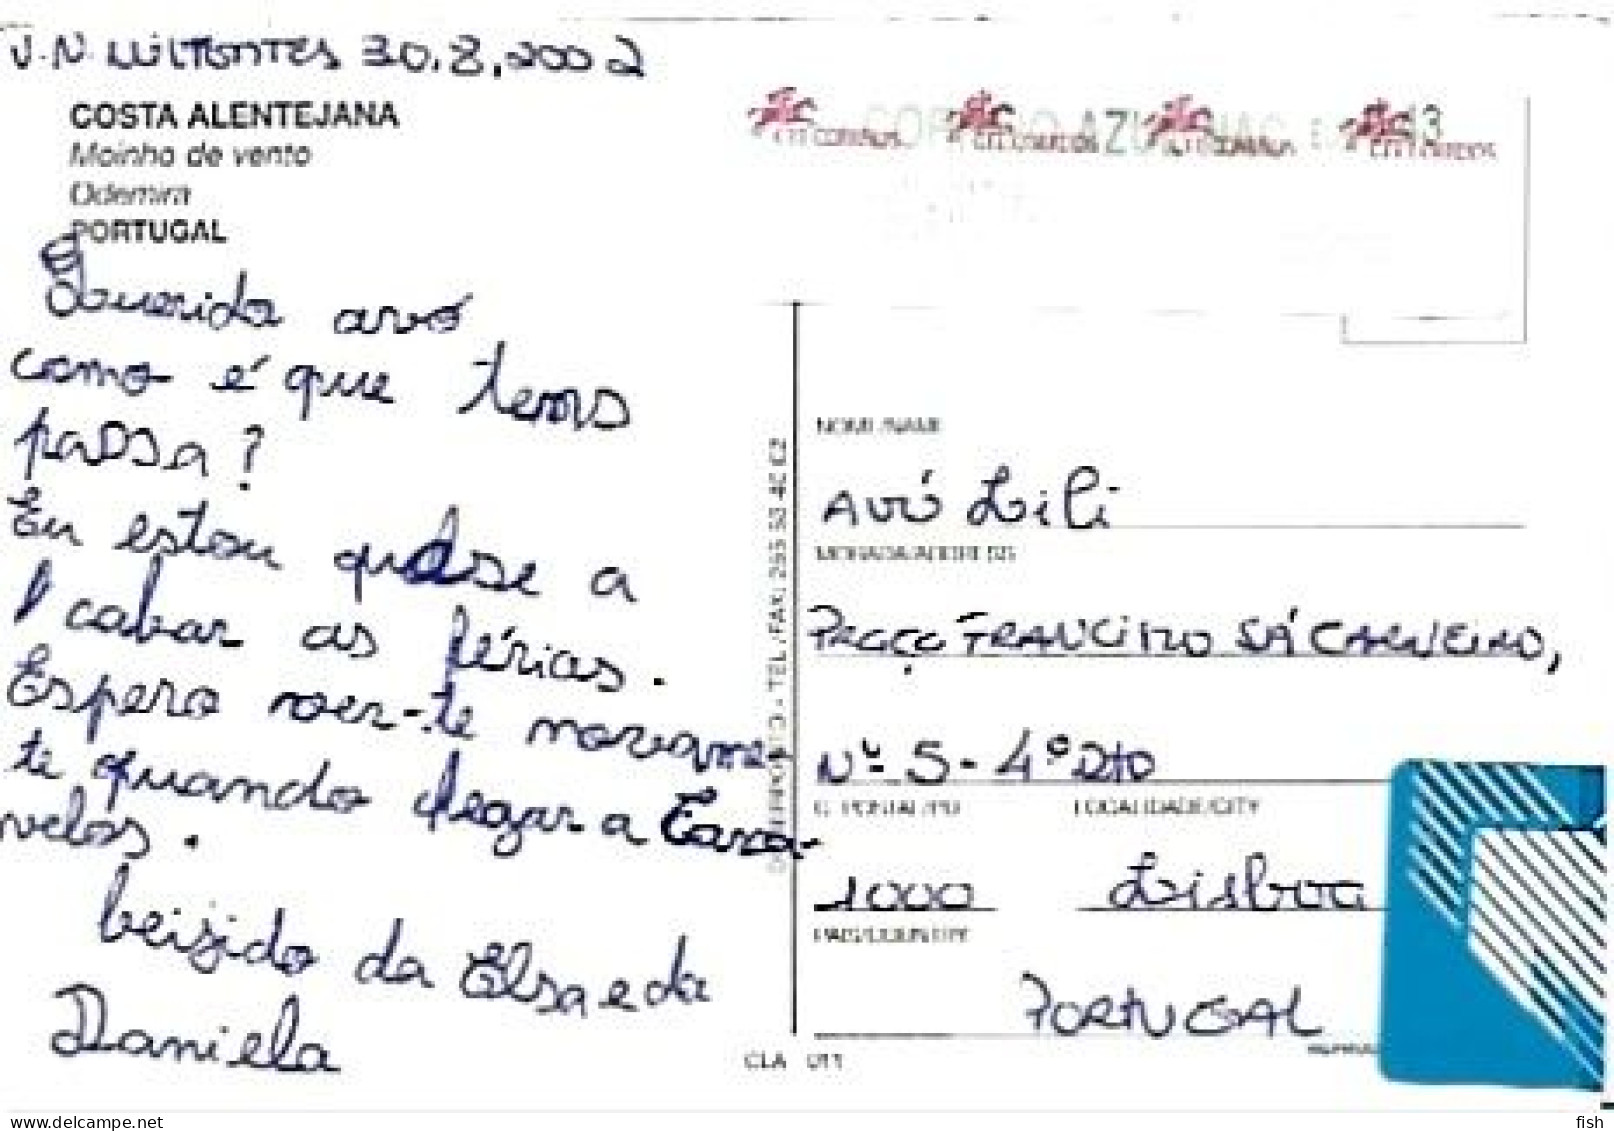 V.N. Milfontes 30.8.2002
COSTA ALENTEJANA
Moinho de vento
Odemira
PORTUGAL
Querida avó
como é que tens
passa?
Eu estou quase a
cabar as férias.
Espero voer-te novame-
te quando chegar a Carca-
velos.
beizido da Elsa e da
Daniela
CORREIO AZUL
CTT CORREIOS
CTT CORREIOS
CTT CORREIOS
CTT CORREIOS
NOME/NAME
AVÓ Lili
MORADA/ADDRESS
PRAÇA FRANCISCO SÁ CARNEIRO,
Nº 5 - 4º DTO
C. POSTAL/PO LOCALIDADE/CITY
1000 Lisboa
PAIS/COUNTRY
PORTUGAL
CLA 011
www.delcampe.net
fish